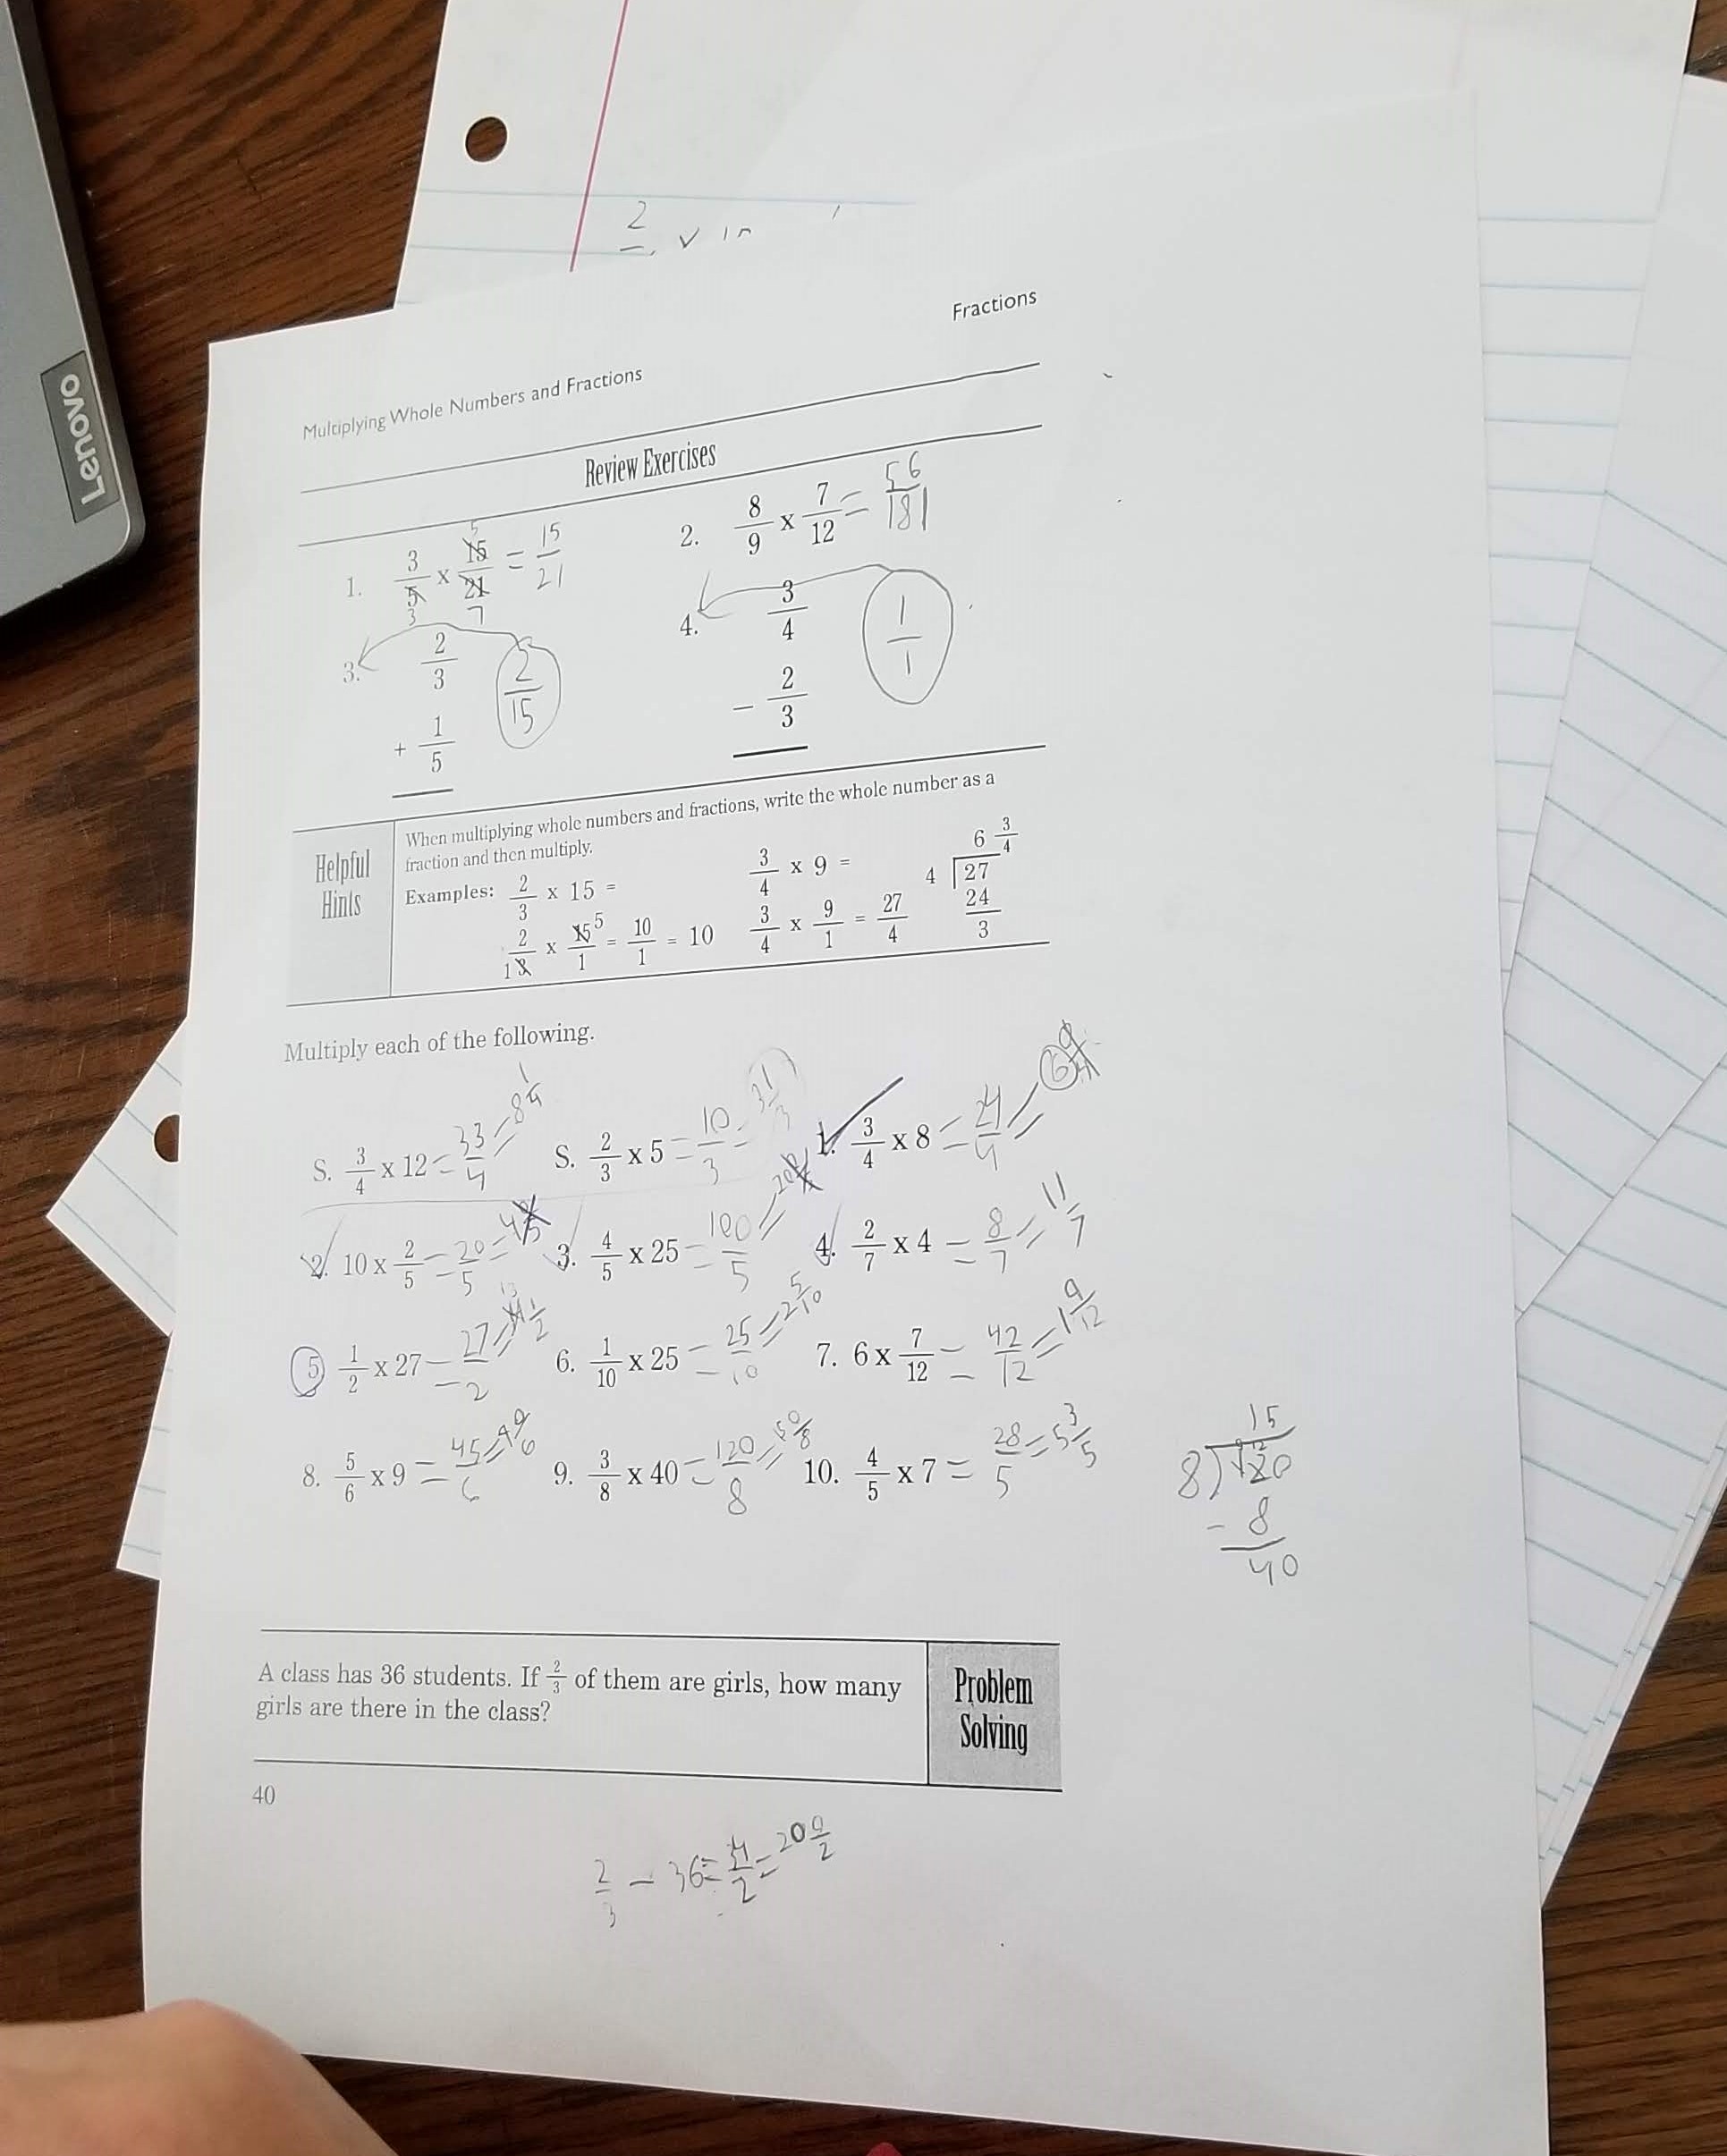 Lenovo
2
Fractions
Multiplying Whole Numbers and Fractions
Review Exercises
1. 3/5 x 15/21 = 15/21
5
3 7
2. 8/9 x 7/12 = 56/181
3. 2/3 + 1/5
2/15
4. 3/4 - 2/3
1/1
Helpful Hints
When multiplying whole numbers and fractions, write the whole number as a
fraction and then multiply.
Examples: 2/3 x 15 =
2/3 x 15/1 = 10/1 = 10
1 5
3/4 x 9 =
3/4 x 9/1 = 27/4
6 3/4
4 27
24
3
Multiply each of the following.
S. 3/4 x 12 = 33/4 = 8 1/4
S. 2/3 x 5 = 10/3 = 3 1/3
1. 3/4 x 8 = 24/4 = 6
2. 10 x 2/5 = 20/5 = 4
3. 4/5 x 25 = 100/5 = 20
4. 2/7 x 4 = 8/7 = 1 1/7
5 1/2 x 27 = 27/2 = 13 1/2
6. 1/10 x 25 = 25/10 = 2 5/10
7. 6 x 7/12 = 42/12 = 1 9/12
8. 5/6 x 9 = 45/6
9. 3/8 x 40 = 120/8
10. 4/5 x 7 = 28/5 = 5 3/5
15
8) 120
- 8
40
A class has 36 students. If 2/3 of them are girls, how many
girls are there in the class?
Problem Solving
40
2/3 - 36 = = 20 0/2